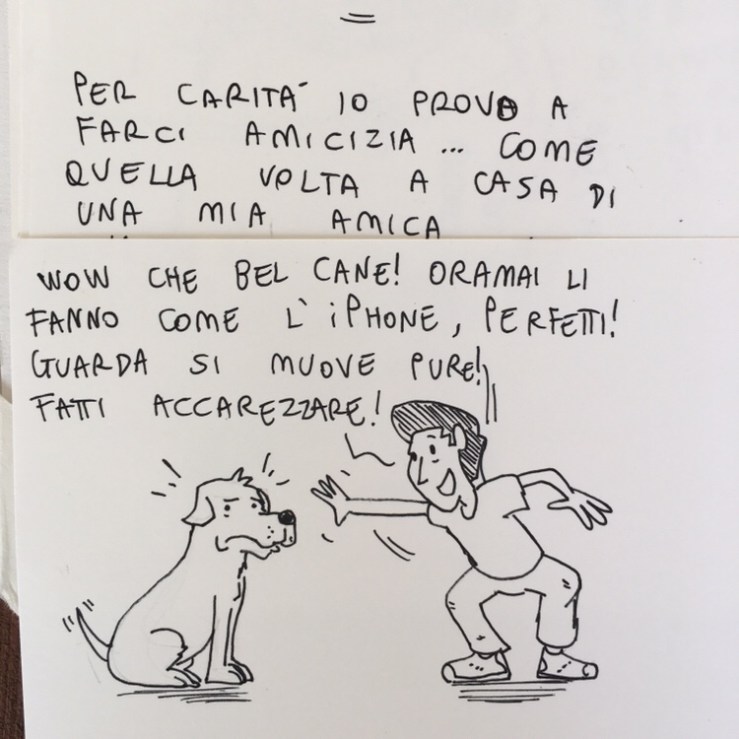 PER CARITA' IO PROVO A
FARCI AMICIZIA ... COME
QUELLA VOLTA A CASA DI
UNA MIA AMICA
WOW CHE BEL CANE! ORAMAI LI
FANNO COME L'iPHONE, PERFETTI!
GUARDA SI MUOVE PURE!
FATTI ACCAREZZARE!